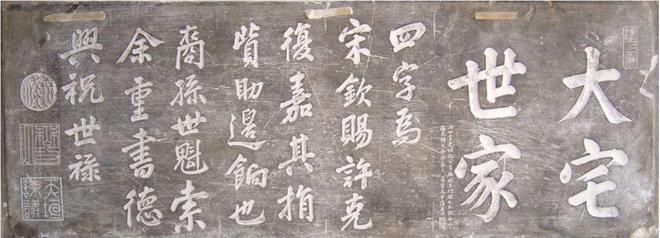 大宅
世家
四字爲
宋欽賜許克
復嘉其捐
貲助邊餉也
裔孫世魁索
余重書德
興祝世祿